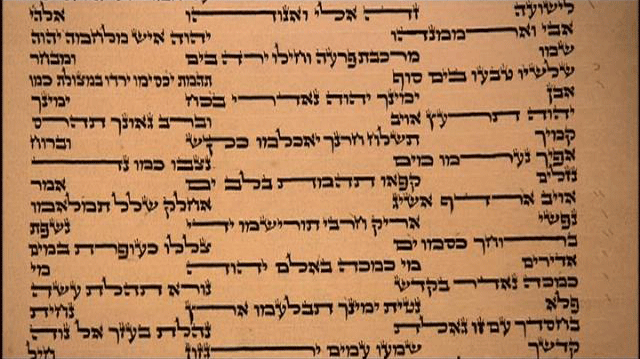 לישועה זה אלי ואנוהו אלהי
אבי וארממנהו יהוה איש מלחמה יהוה
שמו מרכבת פרעה וחילו ירה בים ומבחר
שלשיו טבעו בים סוף תהמת יכסימו ירדו במצולת כמו
אבן ימינך יהוה נאדרי בכח ימינך
יהוה תרעץ אויב וברב גאונך תהרס
קמיך תשלח חרנך יאכלמו כקש וברוח
אפיך נערמו מים נצבו כמו נד
נזלים קפאו תהמת בלב ים אמר
אויב ארדף אשיג אחלק שלל תמלאמו
נפשי אריק חרבי תורישמו ידי נשפת
ברוחך כסמו ים צללו כעופרת במים
אדירים מי כמכה באלם יהוה מי
כמכה נאדר בקדש נורא תהלת עשה
פלא נטית ימינך תבלעמו ארץ נחית
בחסדך עם זו גאלת נהלת בעזך אל נוה
קדשך שמעו עמים ירגזון חיל